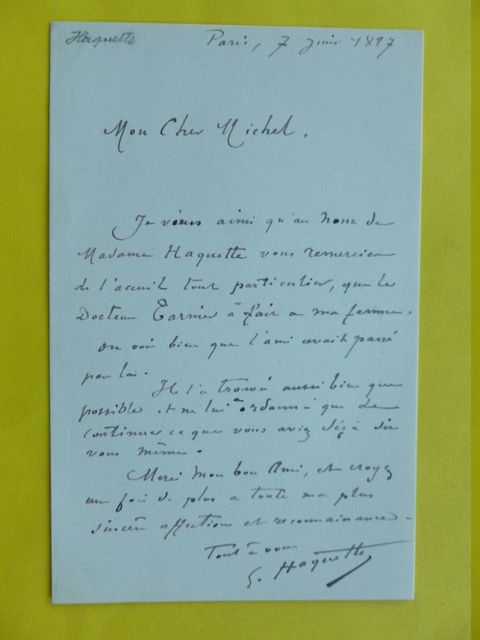 Haquette
Paris, 7 juin 1887
Mon Cher Michel.
Je viens ainsi qu'au nom de
Madame Haquette vous remercier
de l'accueil tout particulier, que le
Docteur Tarnier à fait a ma femme,
on voit bien que l'ami avait passé
par la.
Il l'a trouvé aussi bien que
possible et ne lui a ordonné que de
continuer ce que vous aviez déjà dit
vous même.
Merci Mon bon Ami, et croyez
une fois de plus a toute ma plus
sincère affection et reconnaissance.
Tout à vous
G. Haquette